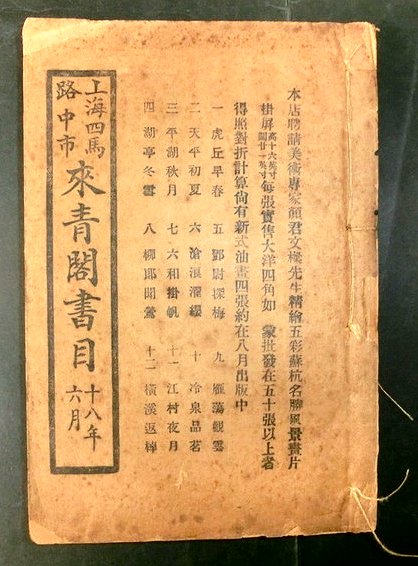 本店聘請美術專家顏君文樑先生精繪五彩蘇杭名勝風景畫片
掛屏高十六英寸闊廿一英寸每張實售大洋四角如 蒙批發在五十張以上者
得照對折計算尙有新式油畫四張約在八月出版中
一 虎丘早春 五 鄧尉探梅 九 雁蕩觀雲
二 天平初夏 六 滄浪濯纓 十 冷泉品茗
三 平湖秋月 七 六和掛帆 十一 江村夜月
四 湖亭冬雪 八 柳郎聞鶯 十二 橫溪返棹
上海四馬
路中市
來青閣書目
十八年
六月